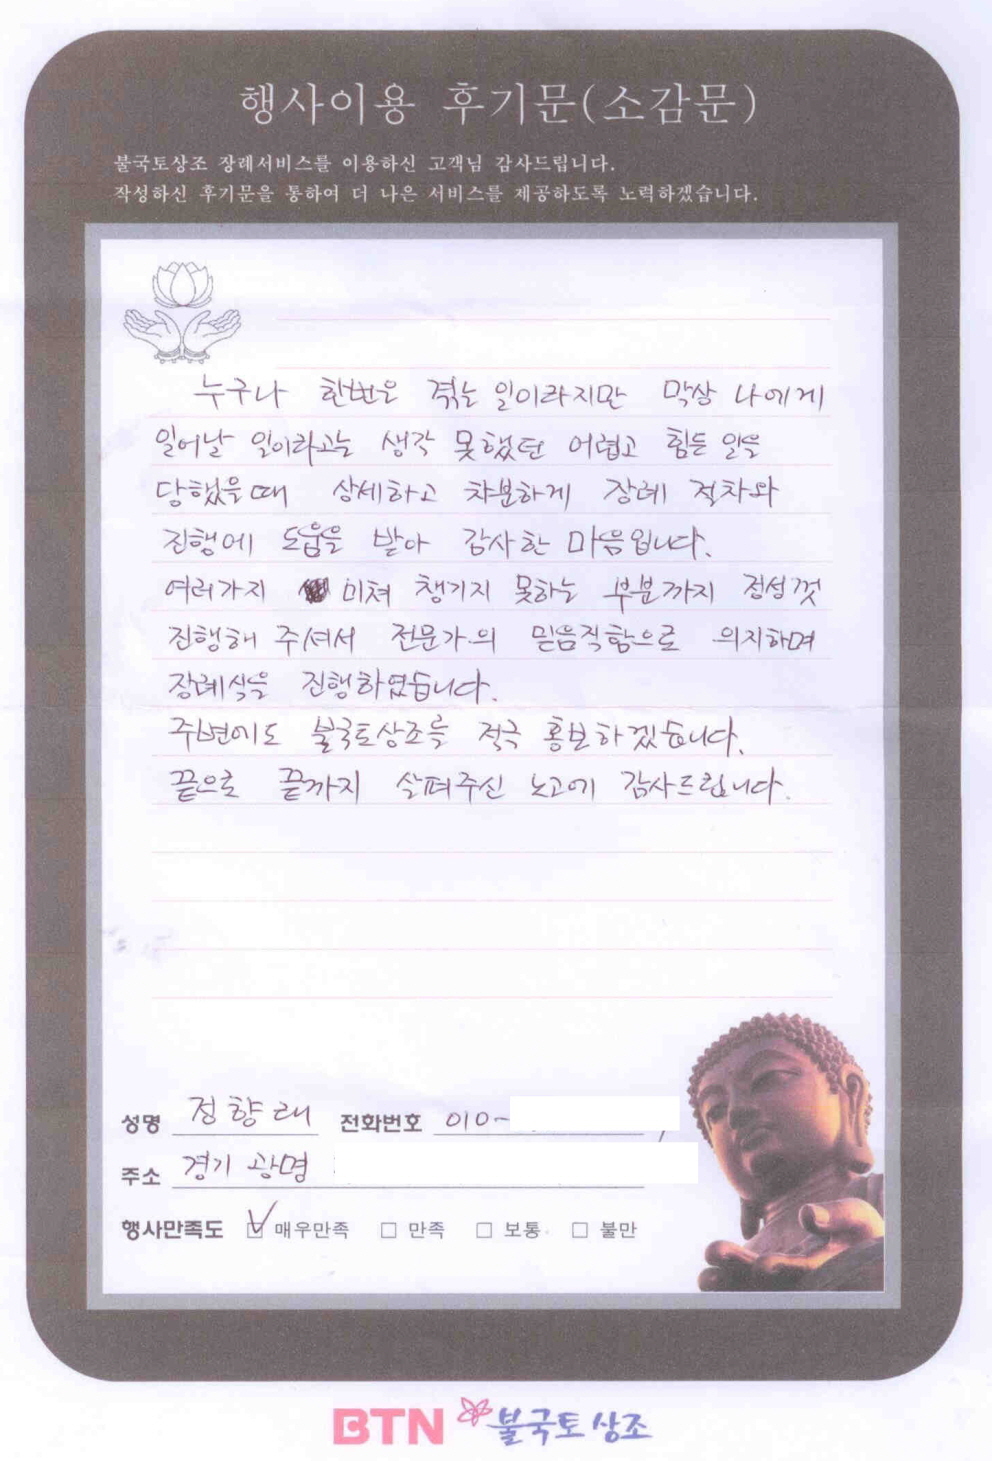 행사이용 후기문(소감문)
불국토상조 장례서비스를 이용하신 고객님 감사드립니다.
작성하신 후기문을 통하여 더 나은 서비스를 제공하도록 노력하겠습니다.
누구나 한번은 겪는 일이라지만 막상 나에게
일어날 일이라고는 생각 못했던 어렵고 힘든 일을
당했을때 상세하고 차분하게 장례 절차와
진행에 도움을 받아 감사한 마음입니다.
여러가지 미쳐 챙기지 못하는 부분까지 정성껏
진행해 주셔서 전문가의 믿음직함으로 의지하며
장례식을 진행하였습니다.
주변에도 불국토상조를 적극 홍보하겠습니다.
끝으로 끝까지 살펴주신 노고에 감사드립니다.
성명 정향래 전화번호 010-
주소 경기 광명
행사만족도 ☑ 매우만족 □ 만족 □ 보통 □ 불만
BTN 불국토상조